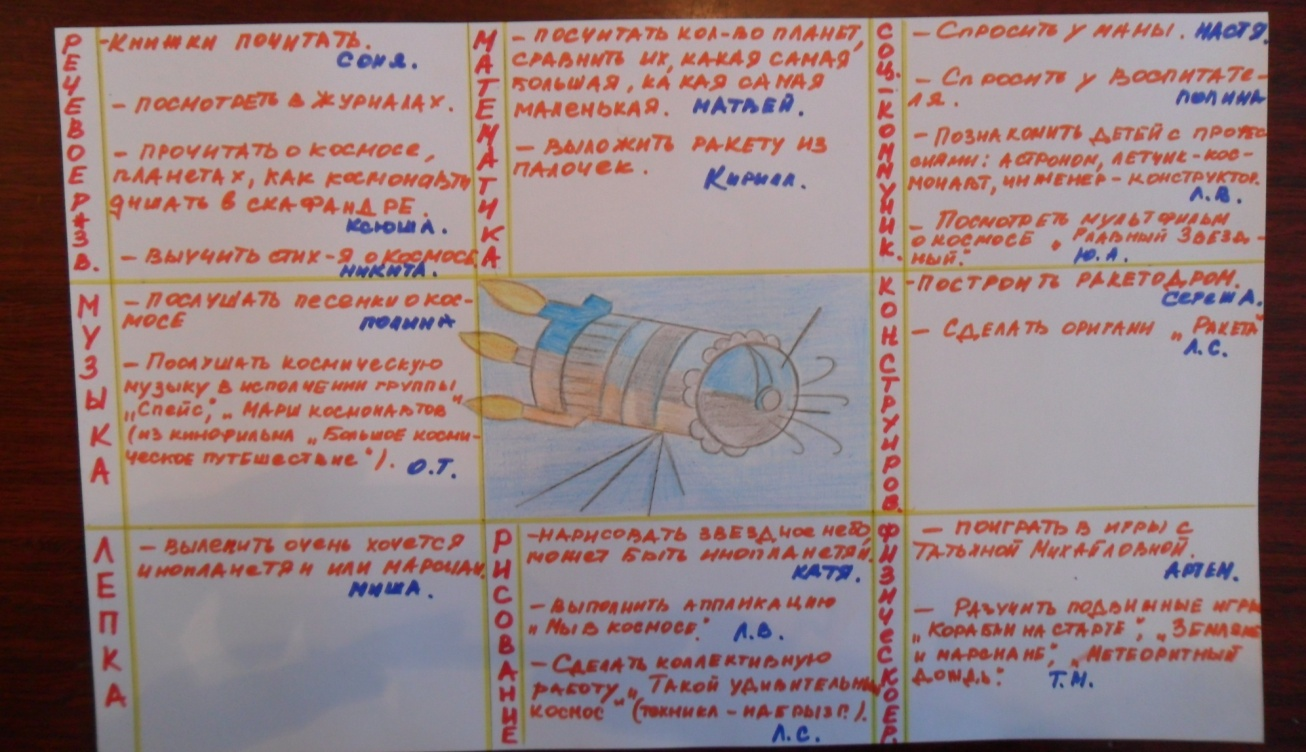 РЕЧЕВОЕ РАЗВ.
-Книжки почитать.
Соня.
- посмотреть в журналах.
- прочитать о космосе,
планетах, как космонавты
дышать в скафандре.
Ксюша.
- Выучить стих-я о космосе
Никита.
МАТЕМАТИКА
- посчитать кол-во планет,
сравнить их, какая самая
большая, ка кая самая
маленькая. Матвей.
- Выложить ракету из
палочек.
Кирилл.
СОЦ.-КОМУНИК.
- Спросить у мамы. Настя.
- Спросить у воспитате-
ля. Полина
- Познакомить детей с профес
сиями: астроном, летчик-кос-
монавт, инженер-конструктор.
Л.В.
- Посмотреть мультфильм
о космосе „
ный." Ю.А.
МУЗЫКА
- Послушать песенки о кос-
мосе Полина
- Послушать космическую
музыку в исполнении группы
„Спейс," „Марш космонавтов"
(из кинофильма „Большое косми-
ческое путешествие"). О.Т.
КОНСТРУИРОВ.
-Построить ракетодром.
Сережа.
- Сделать оригами „Ракета"
Л.С.
ЛЕПКА
- вылепить очень хочется
инопланетян или марсиан.
Миша.
РИСОВАНИЕ
-Нарисовать звездное небо,
может быть инопланетян.
Катя.
- Выполнить аппликацию
„Мы в космосе." Л.В.
- Сделать коллективную
работу „Такой удивительный
космос" (техника - набрызг.).
Л.С.
ФИЗИЧЕСКОЕ Р.
- поиграть в игры с
Татьяной Михайловной.
Артем.
- Разучить подвижные игры
„Корабли на старте", „Земляне
и марсиане", „Метеоритный
дождь". Т.М.